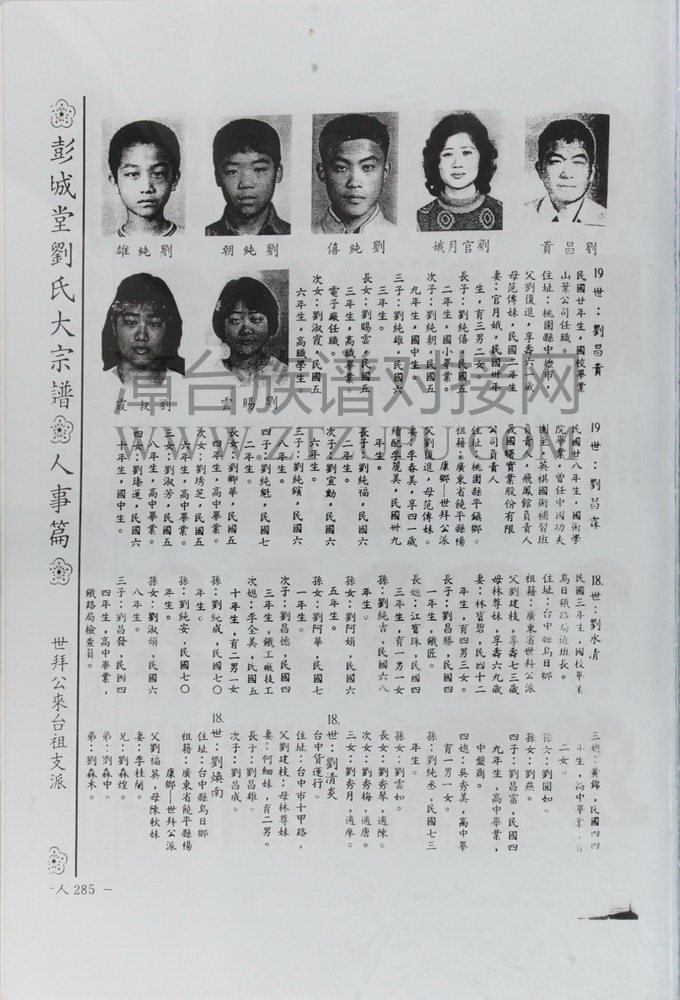 彭城堂劉氏大宗譜 人事篇 世拜公來台祖支派
劉昌貴
劉官月娥
劉純僖
劉純朝
劉純雄
劉賜雲
劉淑霞
19世：劉昌貴
民國廿年生，國校畢業
山葉公司任職。
住址：桃園縣中壢市，
父劉復進，享壽六一歲
母范傳妹，民國二年生
妻：官月娥，民國卅年
生，育三男二女。
長子：劉純僖，民國五
二年生，國小畢業。
次子：劉純朝，民國五
九年生，國中生。
三子：劉純雄，民國六
三年生。
長女：劉賜雲，民國五
三年生，高職畢業。
電子廠任職。
次女：劉淑霞，民國五
六年生，高職學生
19世：劉昌霖
民國廿八年生，國術學
院畢業，曾任中國功夫
團主，英棋國術補習班
負責人，飛鳳館負責人
晟國曙實業股份有限
公司負責人
住址：桃園縣平鎮鄉。
祖籍：廣東省饒平縣楊
康鄉—世拜公派
父劉復進，母范傳妹。
妻：李春美，享四一歲
續配李麗美，民國卅九
年生。
長子：劉純福，民國六
二年生。
次子：劉宜勳，民國六
六年生。
三子：劉純鑌，民國六
八年生。
四子：劉純魁，民國七
二年生。
長女：劉卿華，民國五
四年生，高中畢業。
次女：劉琇芝，民國五
六年生，高中畢業。
三女：劉淑芳，民國五
八年生，高中畢業。
四女：劉臻蓮，民國六
十年生，國中生。
18.世：劉水清
民國三年生，國校畢業
烏日鐵路局道班長。
住址：台中縣烏日鄉
祖籍：廣東省世拜公派
父劉建枝，享壽七三歲
母林尊妹，享壽六九歲
妻：林寶碧，民四十二
年生，育四男三女。
長子：劉昌勝，民國四
一年生，鐵匠。
長媳：江寶珠，民國四
三年生，育一男一女
孫：劉純吉，民國六八
年生。
孫女：劉阿娟，民國六
五年生。
孫女：劉阿華，民國七
一年生。
次子：劉昌德，民國四
三年生，鐵工廠技工
次媳：李全美，民國五
十年生，育二男一女
孫：劉紀成，民國七〇
年生。
孫：劉純安，民國七〇
年生。
孫女：劉淑娟，民國六
八年生。
三子：劉昌發，民國四
四年生，高中畢業，
鐵路局檢查員。
三媳：黃錦，民國四四
年生，高中畢業，育
二女。
孫女：劉圓如。
孫女：劉燕。
四子：劉昌富，民國四
九年生，高中畢業，
中盤商。
四媳：吳秀美，高中畢
育一男一女。
孫：劉純丞，民國七三
年生。
孫女：劉雲如。
長女：劉秀琴，適陳。
次女：劉秀梅，適唐。
三女：劉秀月，適廖。
18.世：劉清炎
台中貨運行。
住址：台中市十甲路，
父劉建枝：母林尊妹
妻：何細妹，育二男。
長子：劉昌雄。
次子：劉昌成。
18.世：劉煥南
住址：台中縣烏日鄉
祖籍：廣東省饒平縣楊
康鄉—世拜公派
父劉福英，母陳秋妹
妻：李桂蘭。
兄：劉森煌。
弟：劉森中。
弟：劉森木。
-人285-
漳台族谱对接网
WWW.ZTZUPU.CN